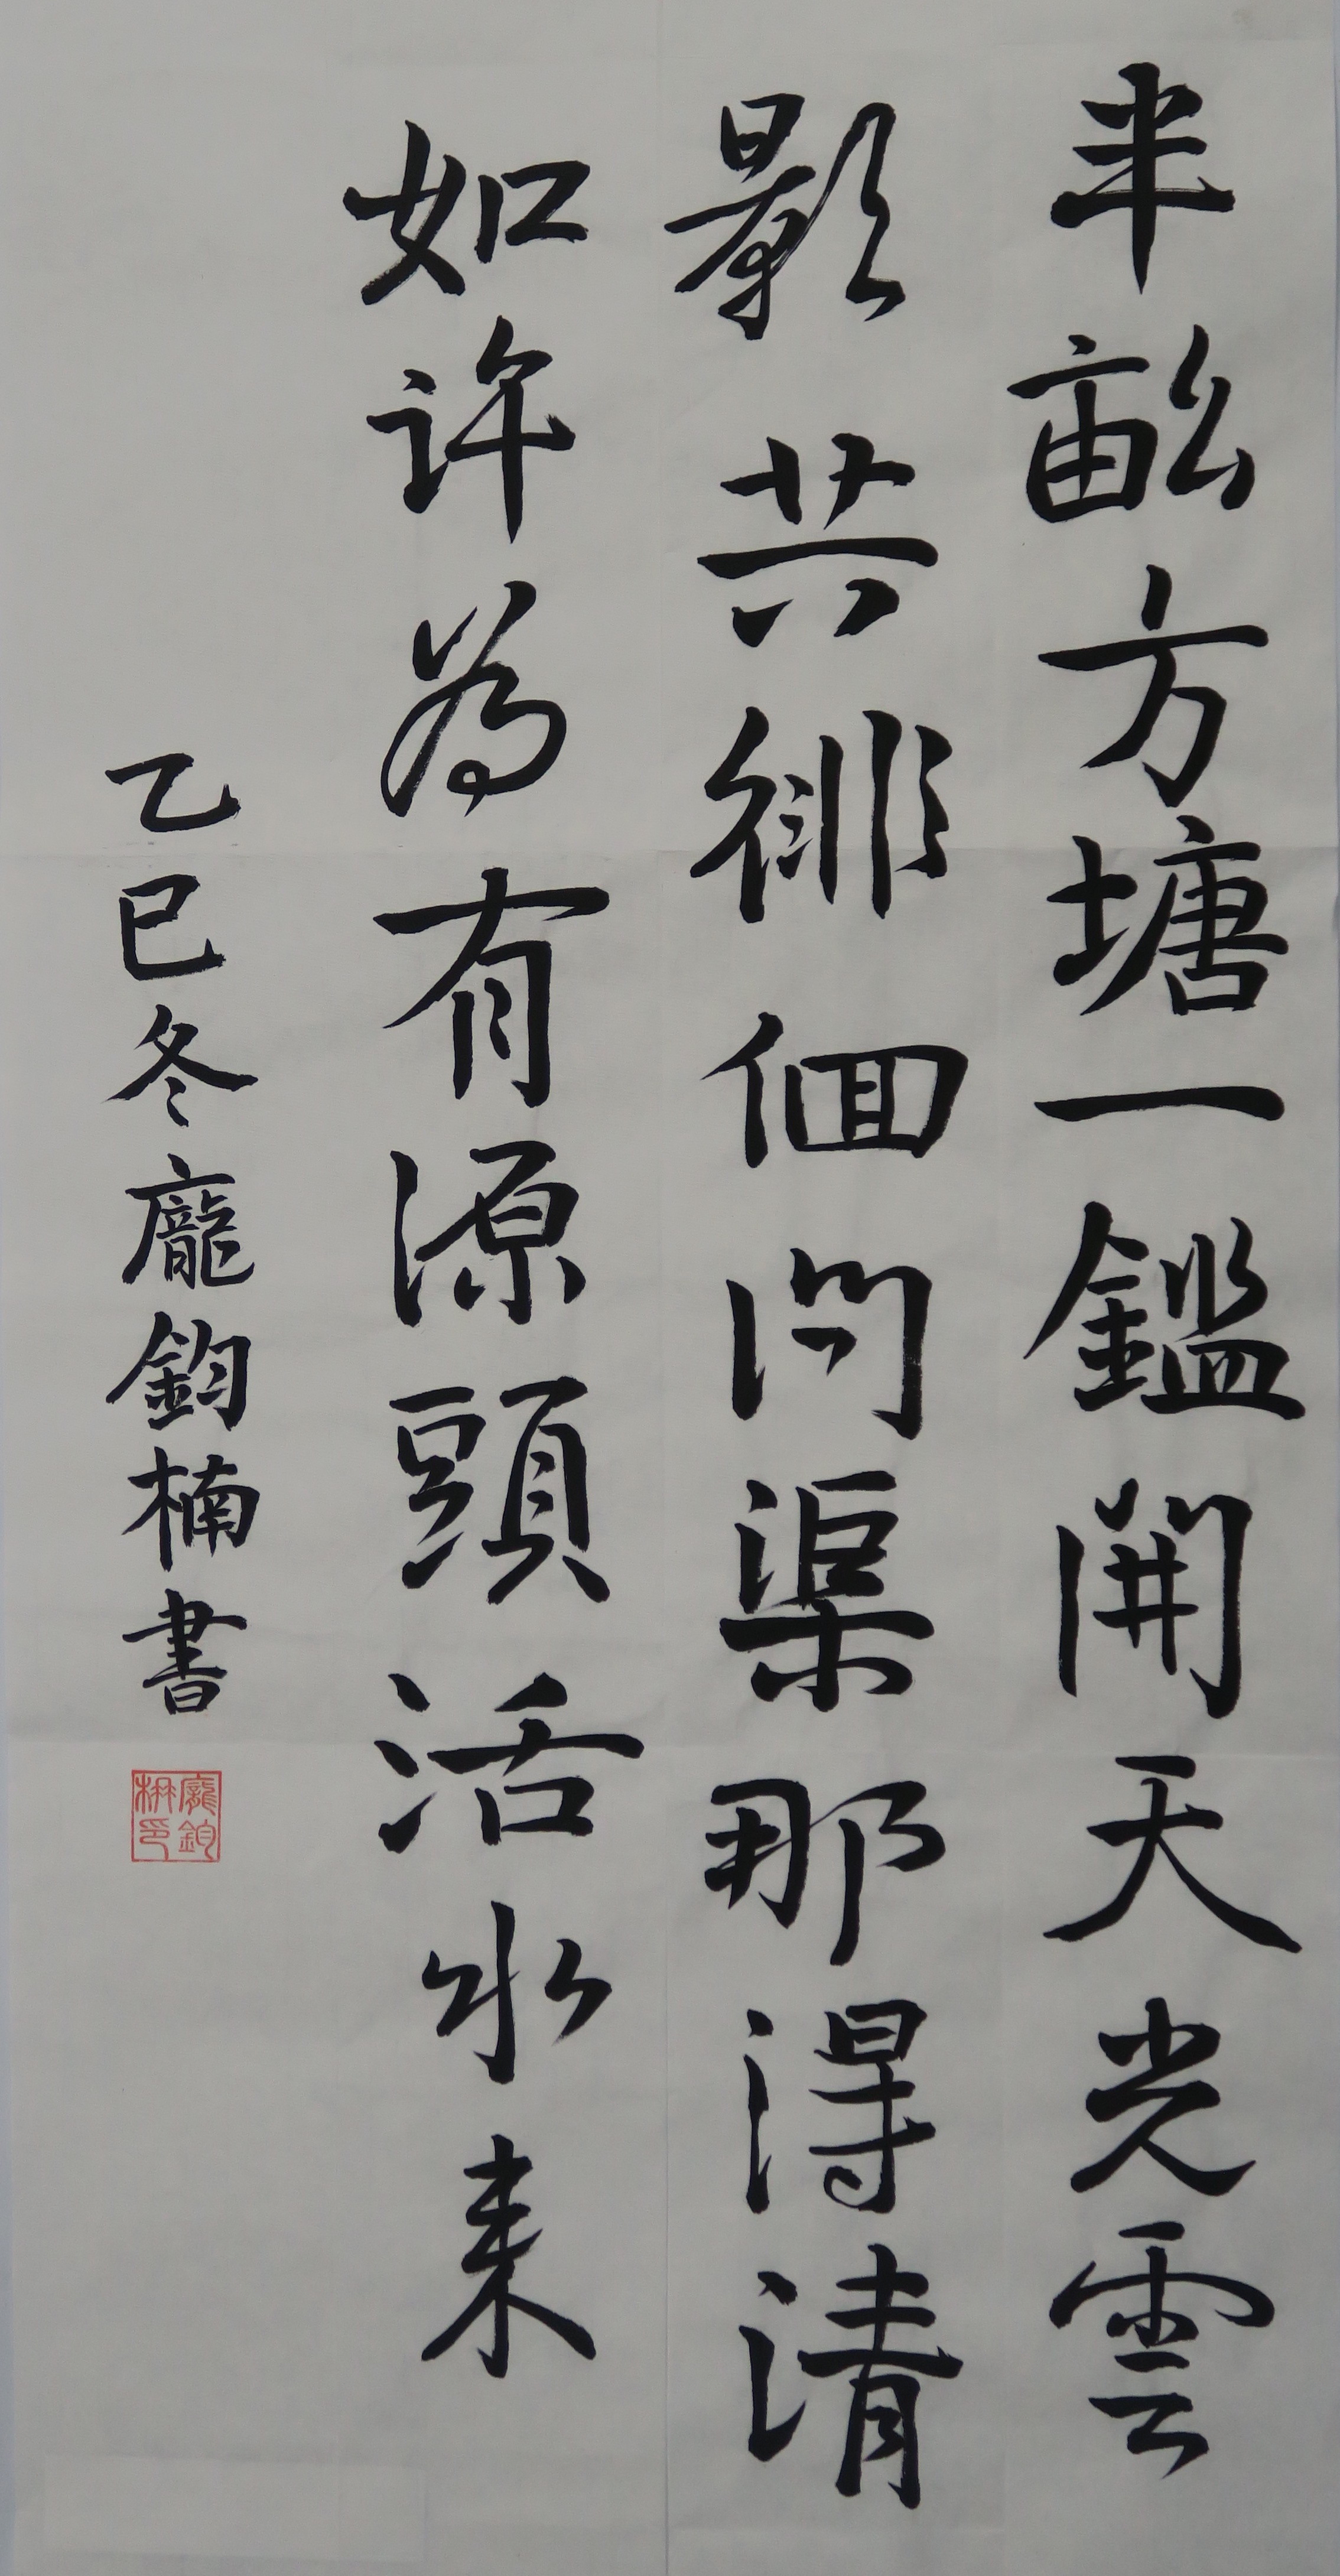 半畝方塘一鑑開天光雲
影共徘徊問渠那得清
如許為有源頭活水来
乙巳冬龐鈞楠書
龐鈞楠印